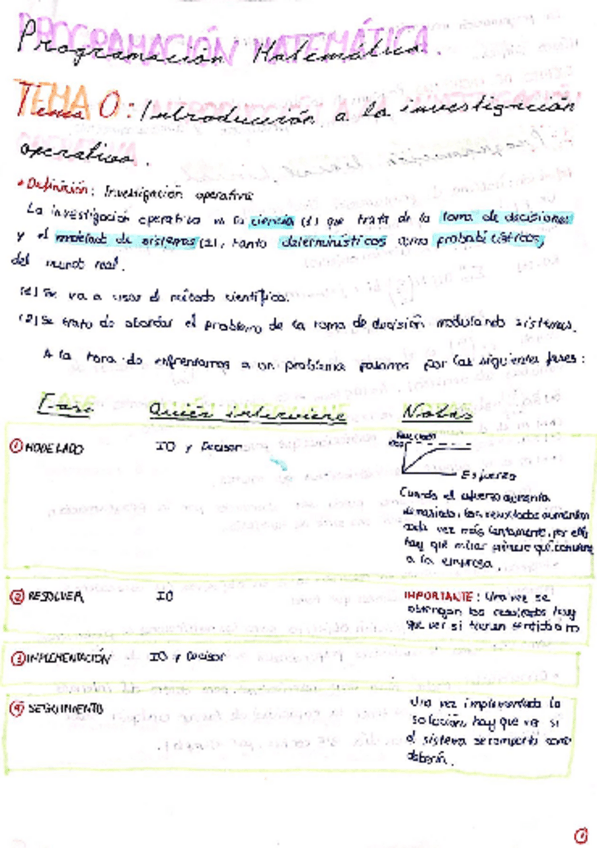 Programación Matemática.
TEMA 0: Introducción a la investigación
operativa.
• Definición: Investigación operativa
La investigación operativa es la ciencia (1) que trata de la toma de decisiones
y el modelado de sistemas (2), tanto determinísticos como probabilísticos,
del mundo real.
(1) Se va a usar el método científico.
(2) Se trata de abordar el problema de la toma de decisión modelando sistemas.
A la hora de enfrentarnos a un problema pasamos por las siguientes fases:
Fase Quién interviene Notas
① MODELADO IO y Decisor Resultado
Esfuerzo
Cuando el esfuerzo aumenta
demasiado, los resultados aumentan
cada vez más lentamente, por ello
hay que mirar primero qué conviene
a la empresa.
② RESOLVER IO IMPORTANTE: Una vez se
obtengan los resultados hay
que ver si tienen sentido o no
③ IMPLEMENTACIÓN IO y Decisor
④ SEGUIMIENTO Una vez implementada la
solución, hay que ver si
el sistema se comporta como
debería.
1